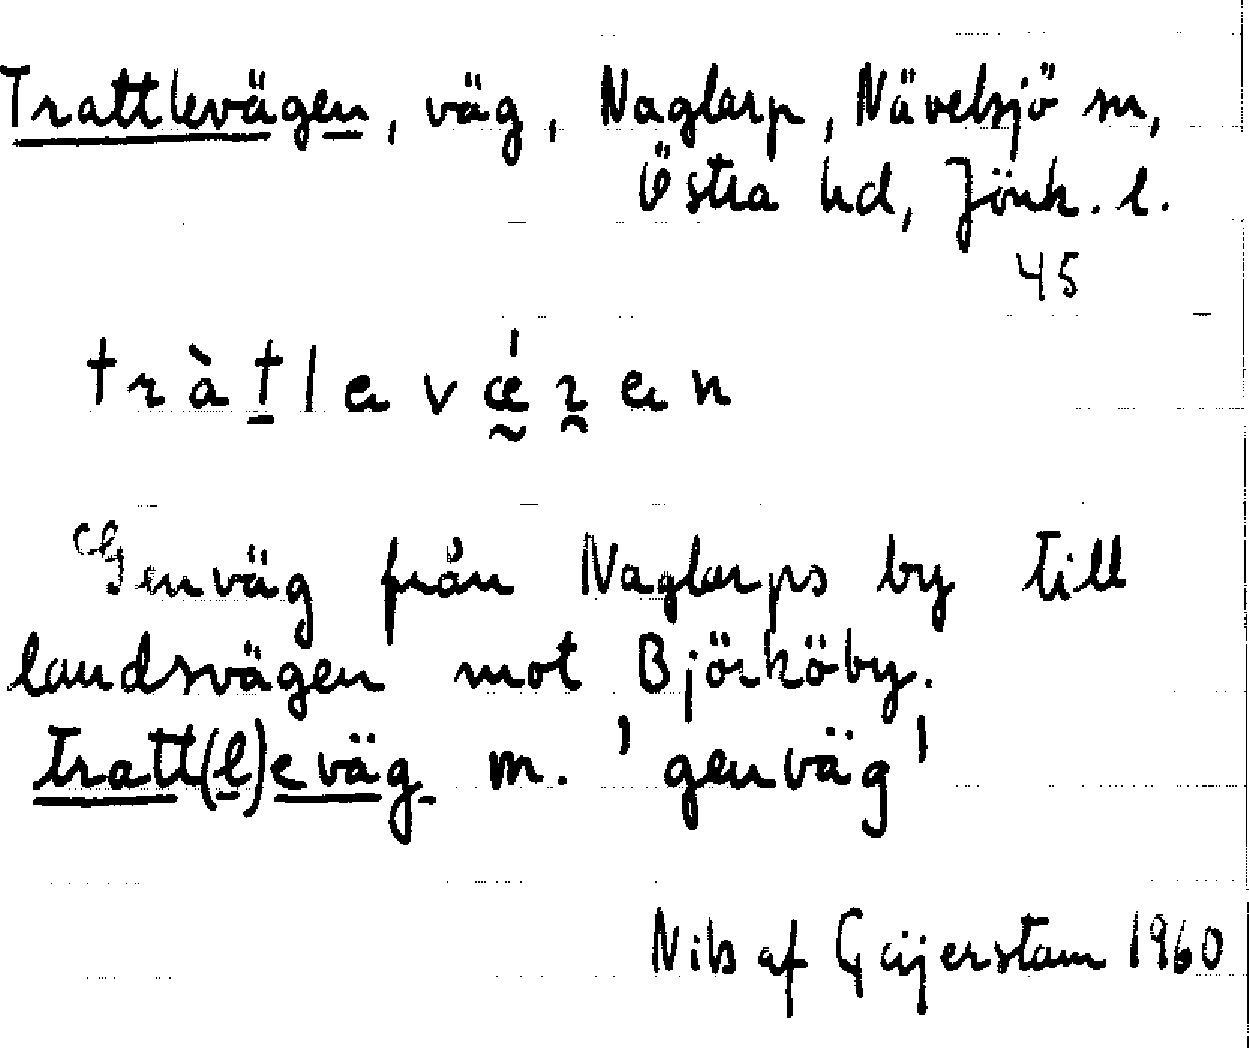 Trattlevägen, väg, Naglarp, Nävelsjö sn,
Östra hd, Jönk. l.
45
tràtlevǽgen
Genväg från Naglarps by till
landsvägen mot Björköby.
tratt(l)eväg m. 'genväg'
Nils af Geijerstam 1960